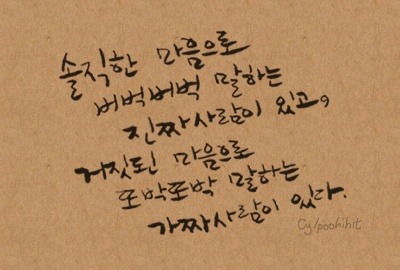 솔직한 마음으로
버벅버벅 말하는
진짜사람이 있고,
거짓된 마음으로
또박또박 말하는
가짜사람이 있다.
Cy/poohihit